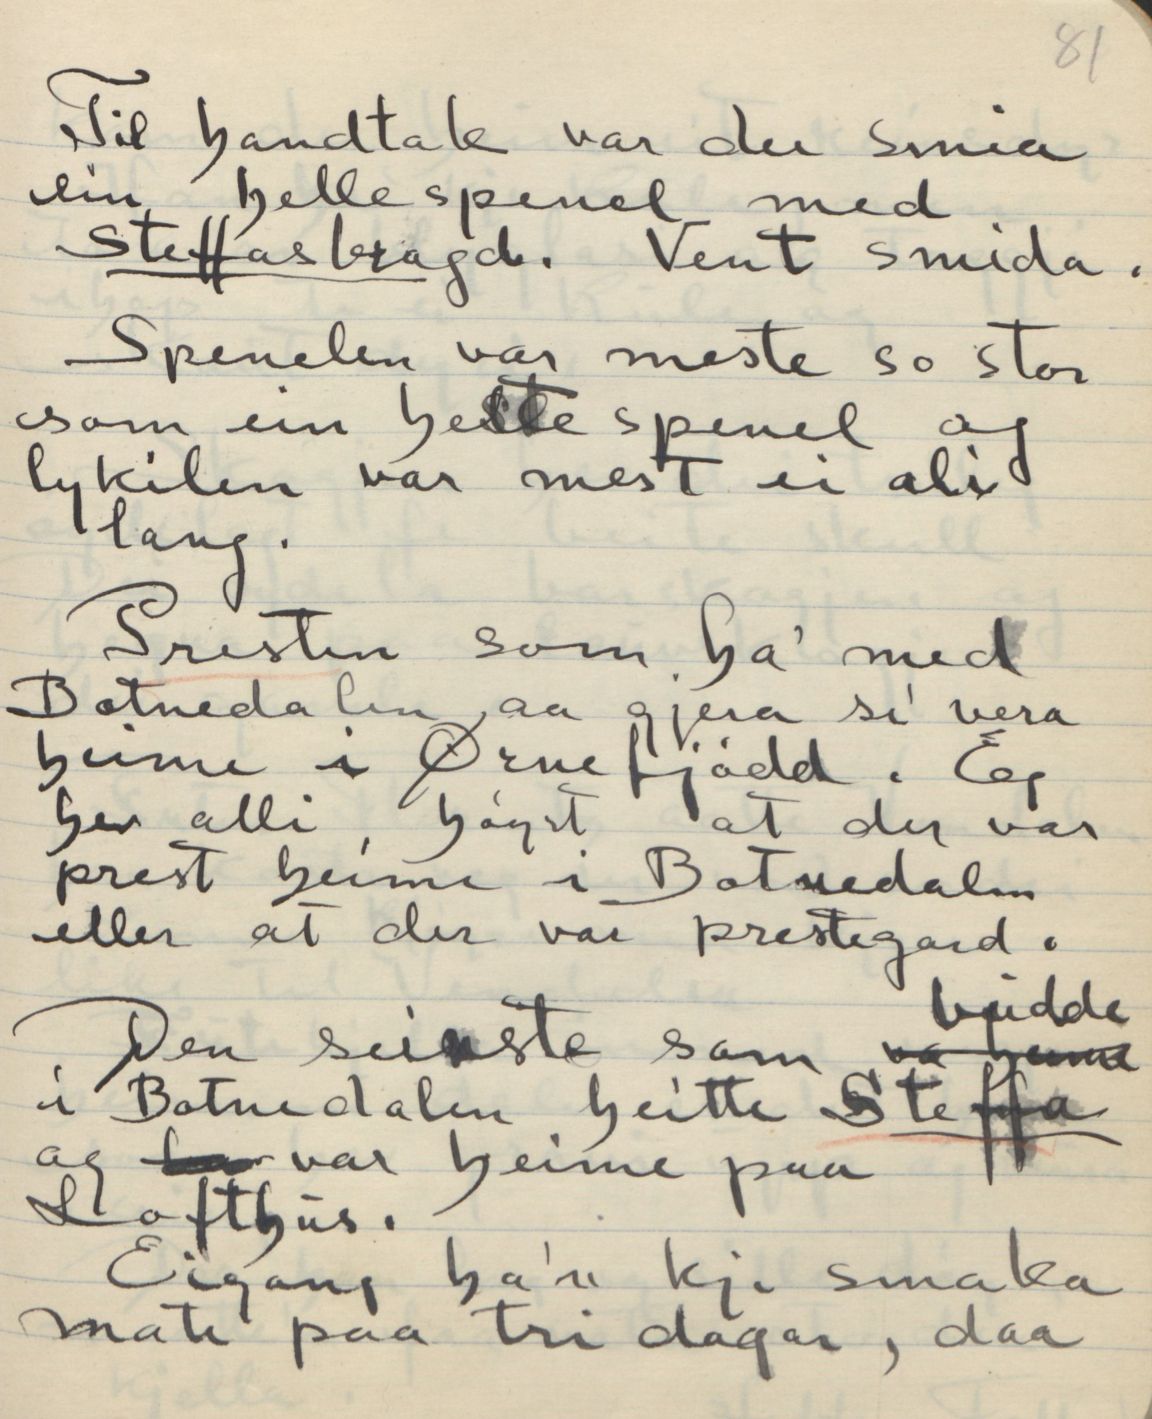 81
Til handtak var der smia
ein hellespenel med
Steffasbragde. Vent smida.
Spenelen var meste so stor
som ein hestespenel og
lykilen var mest ei ali
lang.
Presten som ha' med
Botnedalen aa gjera si' vera
heime i Ørnefjødd. Eg
hev alli, høyrt at der var
prest heime i Botnedalen
eller at der var prestegard.
Den seinste som budde
i Botnedalen heitte Steffa
ag var heime paa
Lofthus.
Eigang ha'n kje smaka
mate paa tri dagar, daa